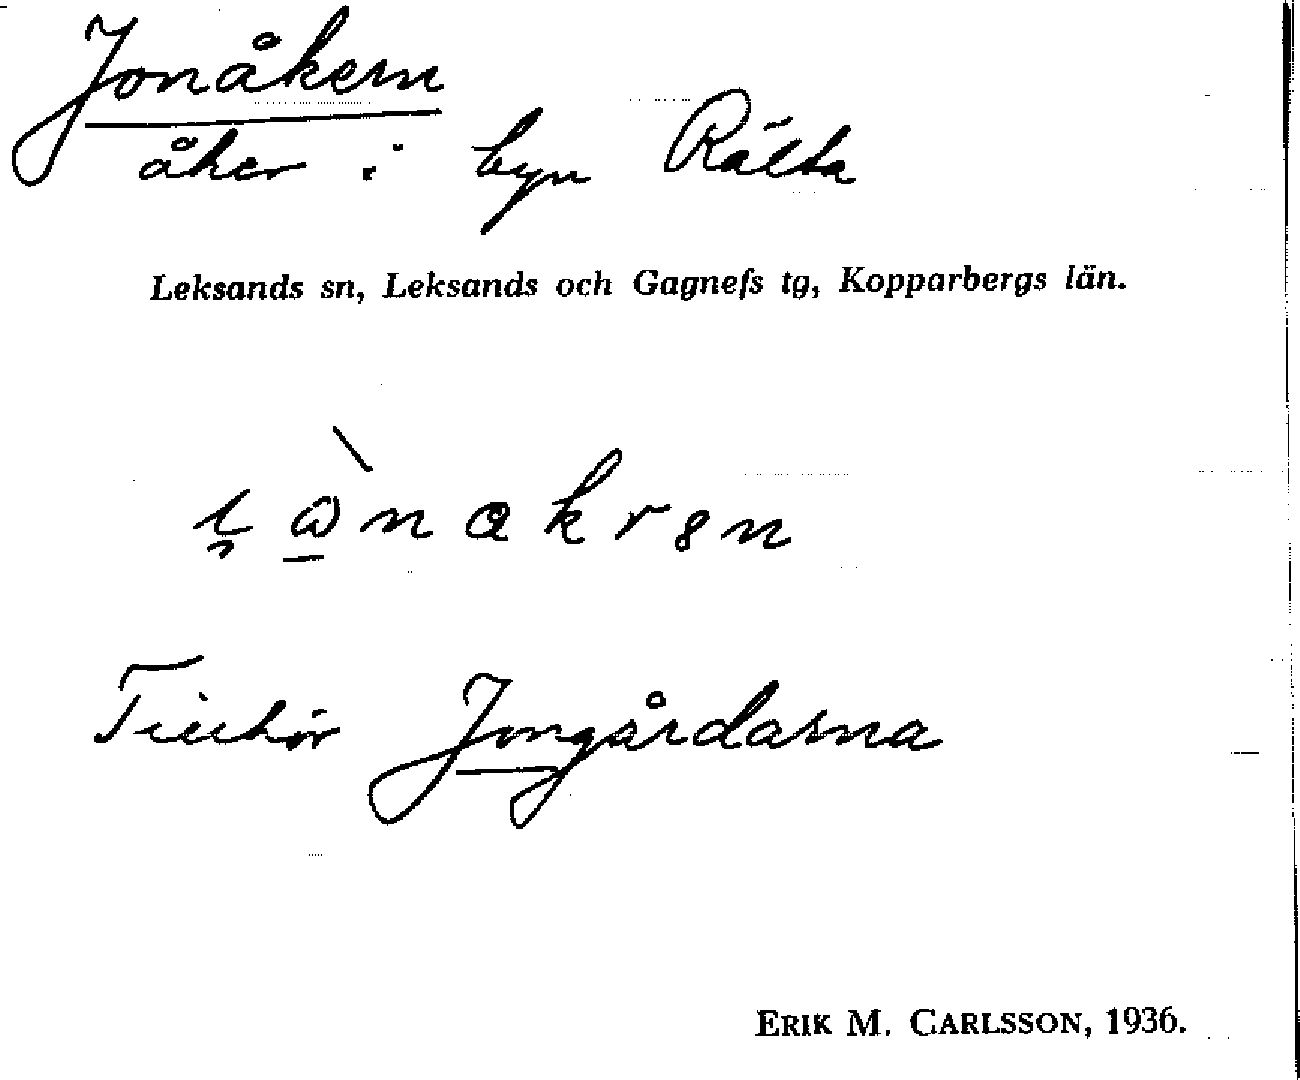 Jonåkern
åker i byn Rälta
Leksands sn, Leksands och Gagnefs tg, Kopparbergs län.
Tillhör Jongårdarna
ERIK M. CARLSSON, 1936.